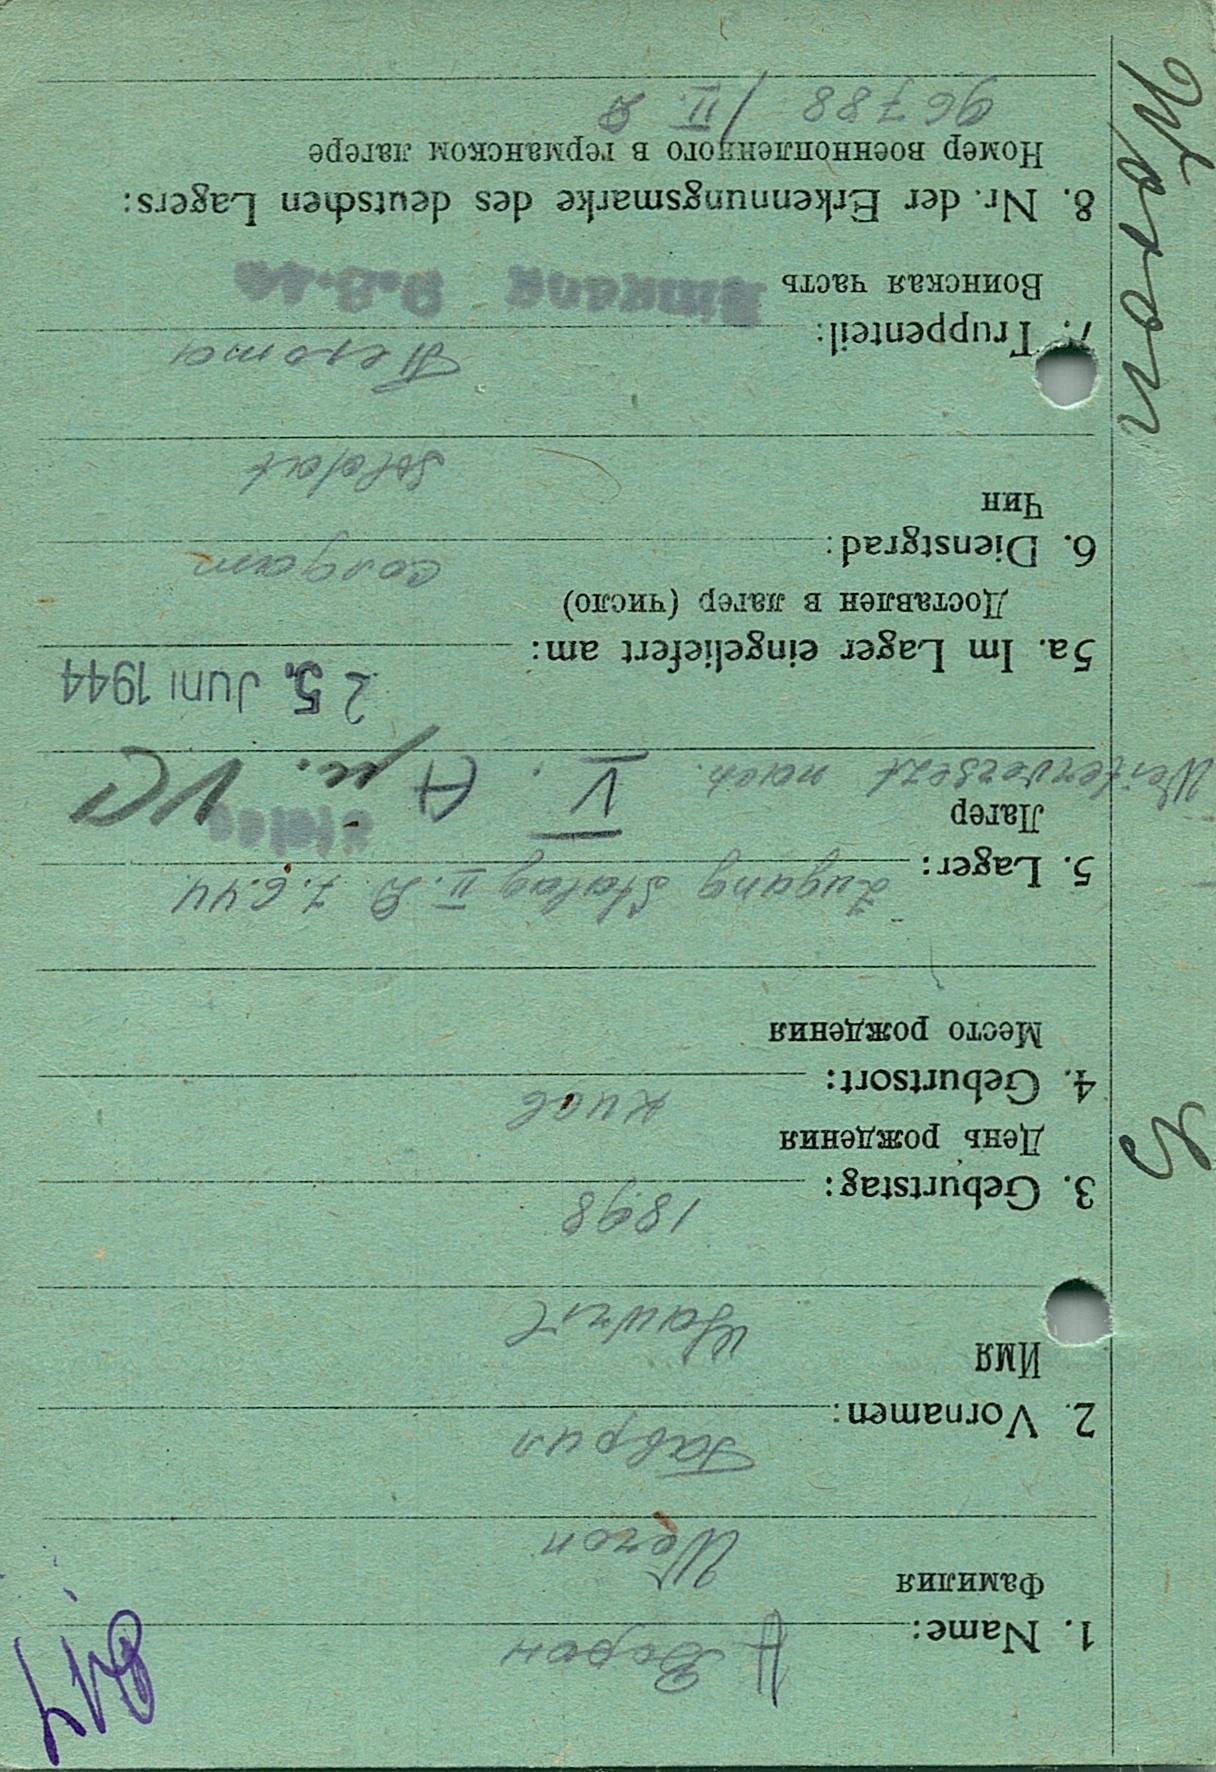 817
1. Name: Ворон
Фамилия
Woron
2. Vornamen: Гаврил
Имя
Gawril
3. Geburtstag: 1898
День рождения
4. Geburtsort: киев
Место рождения
5. Lager: Zugang Stalag II. D 7.6.44
Лагер
Stalag
Weiterversezt nach. V. A u. VC
25. Juni 1944
5a. Im Lager eingeliefert am:
Доставлен в лагер (число)
6. Dienstgrad: солдат
Чин
Soldat
7. Truppenteil: Пехота
Воинская часть
8. Nr. der Erkennungsmarke des deutschen Lagers:
Номер военнопленного в германском лагере
96788 / II. D
Woron